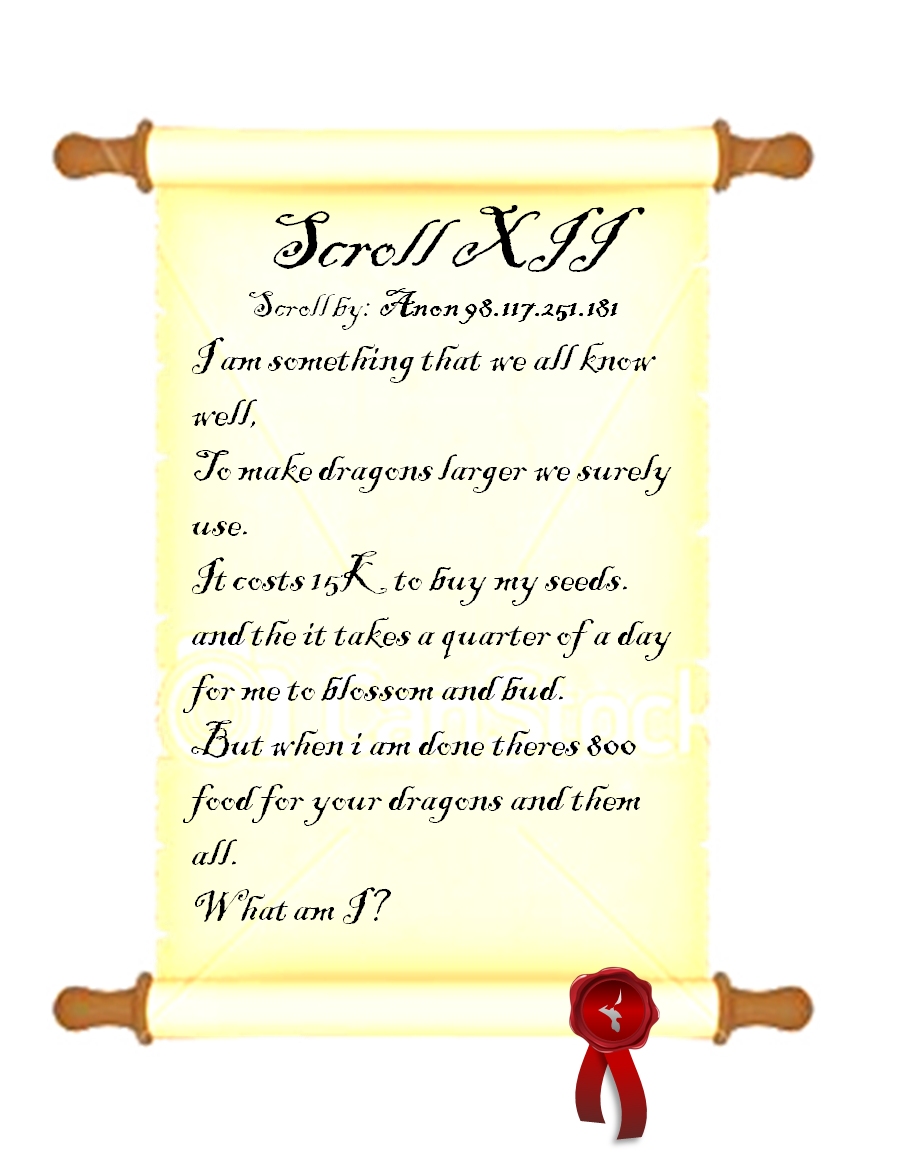 Scroll XII
Scroll by: Anon 98.117.251.181
I am something that we all know
well,
To make dragons larger we surely
use.
It costs 15K to buy my seeds.
and the it takes a quarter of a day
for me to blossom and bud.
But when i am done theres 800
food for your dragons and them
all.
What am I?